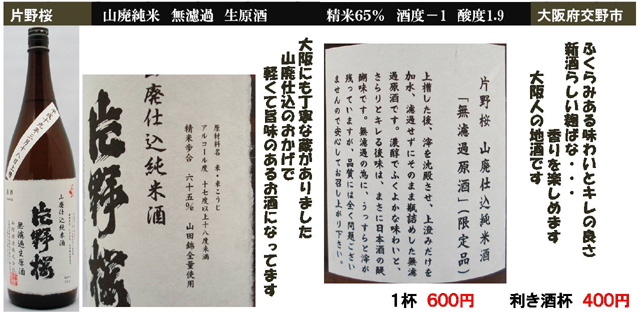 片野桜
山廃純米 無濾過 生原酒
精米65% 酒度－1 酸度1.9
大阪府交野市
山廃仕込純米酒
片野桜
無濾過生原酒
山廃仕込純米酒
片野桜
原材料名 米・米こうじ
アルコール度 十七度以上十八度未満
精米歩合 六十五% 山田錦全量使用
大阪にも丁寧な蔵がありました
山廃仕込のおかげで
軽くて旨味のあるお酒になってます
片野桜 山廃仕込純米酒
「無濾過原酒」(限定品)
上槽した後、滓を沈殿させ、上澄みだけを
加水、濾過せずにそのまま瓶詰めした無濾
過原酒です。濃醇でふくよかな味わいと、
さらりとキレる後味は、まさに日本酒の醍
醐味です。無濾過の為に、うっすらと滓が
残っていますが、品質には全く問題ござい
ませんので安心してお召し上がり下さい。
ふくらみある味わいとキレの良さ
新酒らしい麹ばな・・・
香りを楽しめます
大阪人の地酒です
1杯 600円
利き酒杯 400円